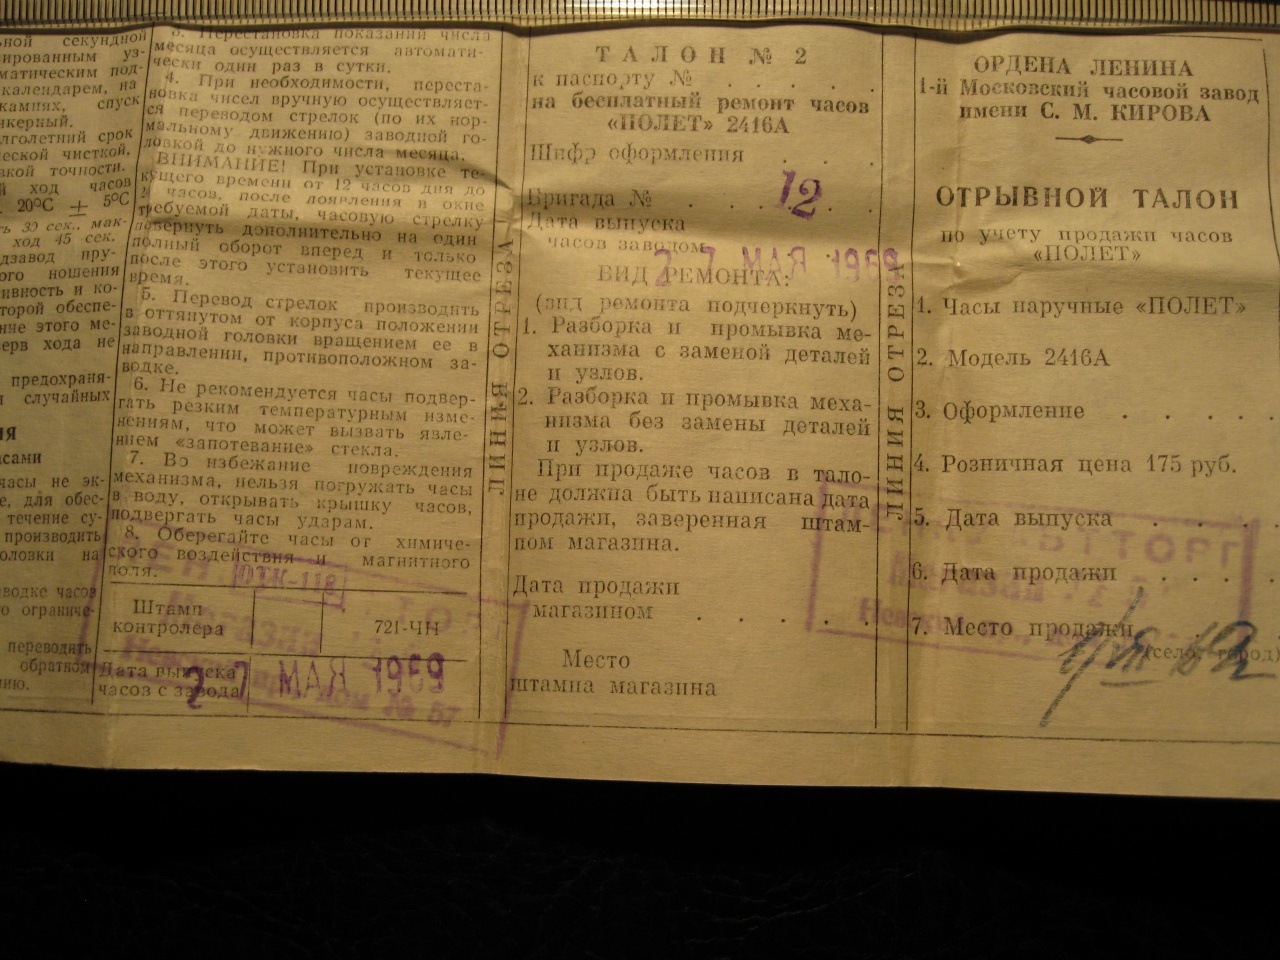 ьной секундной
ированным уз-
матическим под-
календарем, на
камнях, спуск
нкерный.
лголетний срок
ческой чисткой,
вкой точности.
й ход часов
20°С ± 5°С
ь 30 сек., мак-
ход 45 сек.
дзавод пру-
ого ношения
ивность и ко-
торой обеспе-
ние этого ме-
ерв хода не
предохраня-
и случайных
ИЯ
асами
часы не эк-
е, для обес-
течение су-
производить
оловки на
аводке часов
о ограниче-
переводять
обратном
нию.
3. Перестановка показаний числа
месяца осуществляется автомати-
чески один раз в сутки.
4. При необходимости, переста-
новка чисел вручную осуществляет-
ся переводом стрелок (по их нор-
мальному движению) заводной го-
ловкой до нужного числа месяца.
ВНИМАНИЕ! При установке те-
кущего времени от 12 часов дня до
24 часов, после появления в окне
требуемой даты, часовую стрелку
повернуть дополнительно на один
полный оборот вперед и только
после этого установить текущее
время.
5. Перевод стрелок производить
в оттянутом от корпуса положении
заводной головки вращением ее в
направлении, противоположном за-
водке.
6. Не рекомендуется часы подвер-
гать резким температурным изме-
нениям, что может вызвать явле-
нием «запотевание» стекла.
7. Во избежание повреждения
механизма, нельзя погружать часы
в воду, открывать крышку часов,
подвергать часы ударам.
8. Оберегайте часы от химиче-
ского воздействия и магнитного
поля.
ОТК-118
Штамп
контролера
721-ЧН
Дата выпуска
часов с завода
27 МАЯ 1969
Магазин
дом № 57
ЛИНИЯ ОТРЕЗА
ТАЛОН № 2
к паспорту № . . . . .
на бесплатный ремонт часов
«ПОЛЕТ» 2416А
Шифр оформления . . .
Бригада № . . . . 12
Дата выпуска
часов заводом
27 МАЯ 1969
ВИД РЕМОНТА:
(вид ремонта подчеркнуть)
1. Разборка и промывка ме-
ханизма с заменой деталей
и узлов.
2. Разборка и промывка меха-
низма без замены деталей
и узлов.
При продаже часов в тало-
не должна быть написана дата
продажи, заверенная штам-
пом магазина.
Дата продажи
магазином . . . . .
Место
штампа магазина
ЛИНИЯ ОТРЕЗА
ОРДЕНА ЛЕНИНА
1-й Московский часовой завод
имени С. М. КИРОВА
ОТРЫВНОЙ ТАЛОН
по учету продажи часов
«ПОЛЕТ»
1. Часы наручные «ПОЛЕТ»
2. Модель 2416А
3. Оформление . . . . .
4. Розничная цена 175 руб.
5. Дата выпуска . . . .
6. Дата продажи . . . .
7. Место продажи
(село, город)